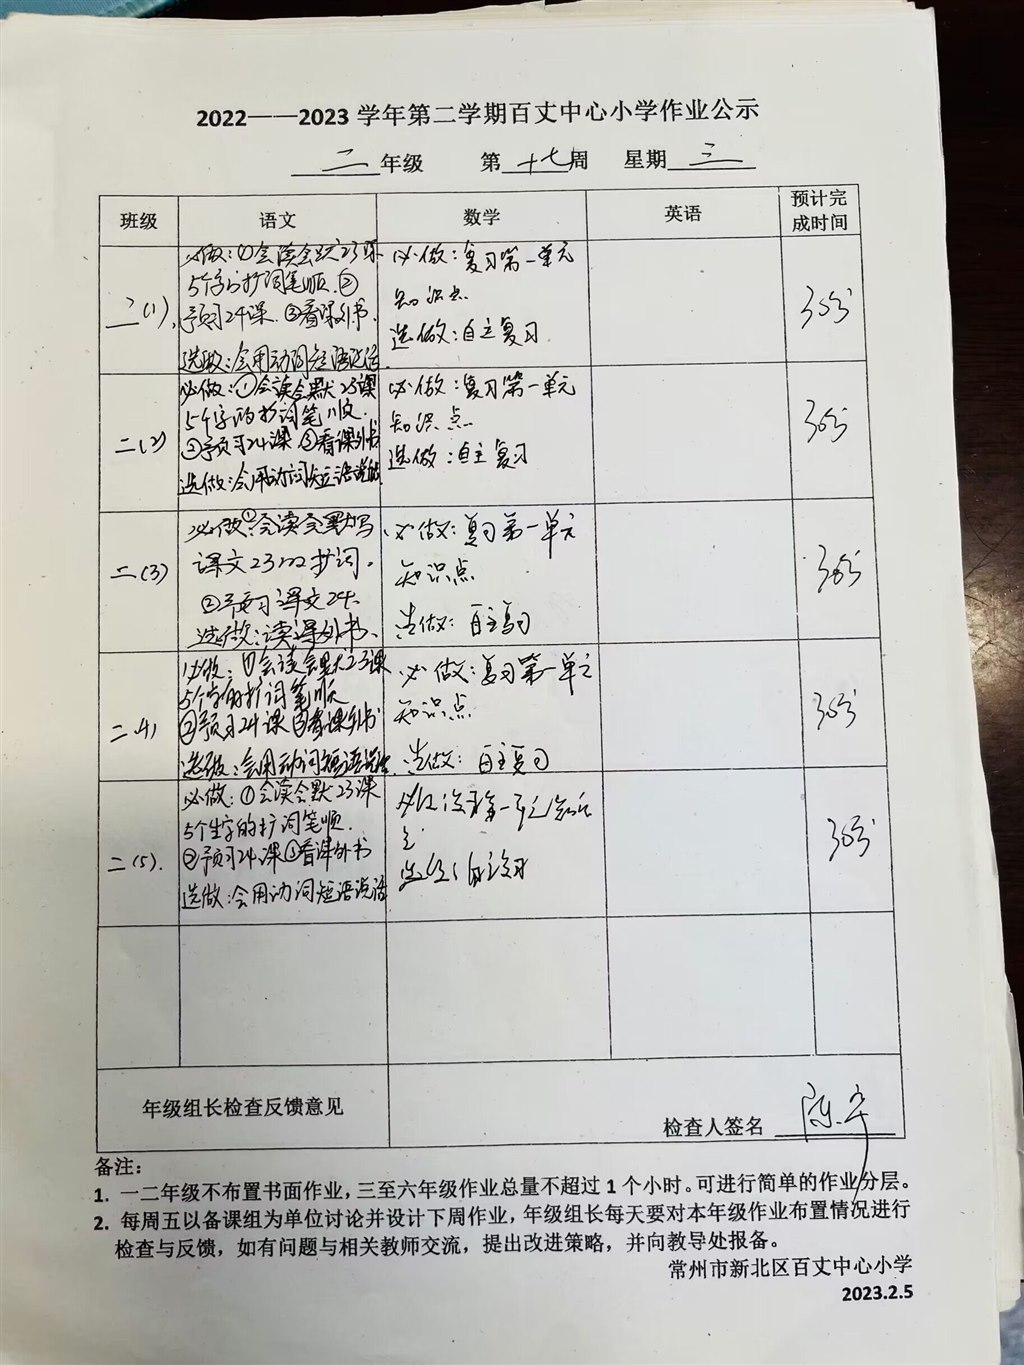 2022——2023 学年第二学期百丈中心小学作业公示
二 年级 第 十七 周 星期 三
班级 语文 数学 英语 预计完成时间
二(1)
必做:①会读会默23课
5个字的扩词笔顺.②
预习24课.③看课外书.
选做:会用动词短语说话
必做:复习第一单元
知识点.
选做:自主复习.
30分
二(2)
必做:①会读会默23课
5个字的扩词笔顺.
②预习24课 ③看课外书
选做:会用动词短语说话
必做:复习第一单元
知识点.
选做:自主复习
30分
二(3)
必做:①会读会默写
课文23的扩词.
②预习课文24.
选做:读课外书.
必做:复习第一单元
知识点
选做:自主复习
30分
二(4)
必做:①会读会默23课
5个字的扩词笔顺
②预习24课③看课外书
选做:会用动词短语说话
必做:复习第一单元
知识点
选做:自主复习
30分
二(5).
必做:①会读会默23课
5个生字的扩词笔顺.
②预习24课③看课外书
选做:会用动词短语说话
必做:复习第一单元知识
点
选做:自主复习
30分
年级组长检查反馈意见
检查人签名 陈
备注:
1. 一二年级不布置书面作业,三至六年级作业总量不超过 1 个小时。可进行简单的作业分层。
2. 每周五以备课组为单位讨论并设计下周作业,年级组长每天要对本年级作业布置情况进行
检查与反馈,如有问题与相关教师交流,提出改进策略,并向教导处报备。
常州市新北区百丈中心小学
2023.2.5